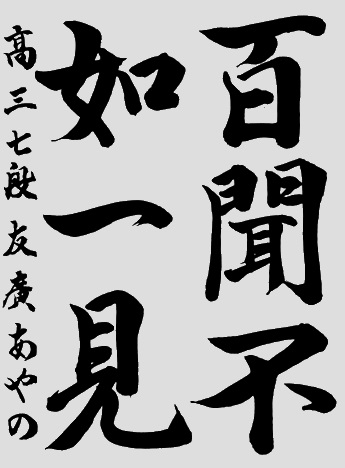 百聞不
如一見
高三七段友廣あやの